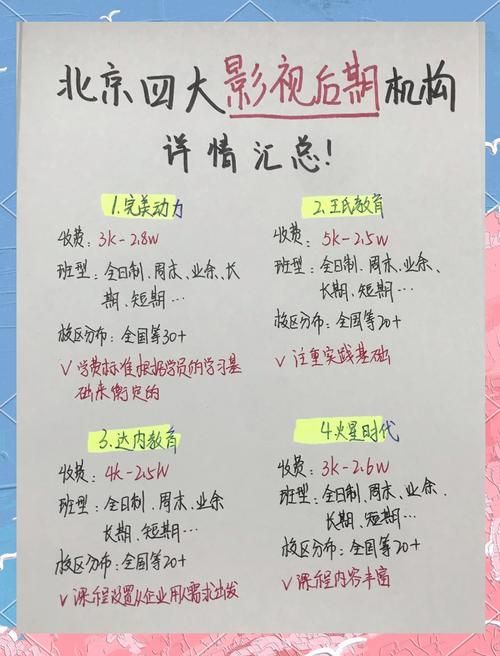 北京四大影视后期机构
详情汇总!
1.完美动力
收费：3k-2.8w
班型：全日制、周末、业余、长
期、短期…
校区分布：全国等30+
√学费标准根据学员的学习基
础来衡定的
2.王氏教育
收费：5k-2.5w
班型：全日制、周末、业余、
长期、短期…
校区分布：全国等20+
√注重实践基础
3.达内教育
收费：4k-2.5w
班型：全日制、周末、业余
长期、短期…
校区分布：全国等20+
√课程设置从企业用人需求出发
4.火星时代
收费：3k-2.6w
班型：全日制、周末、业余、
长期、短期…
校区分布：全国等20+
√课程内容丰富